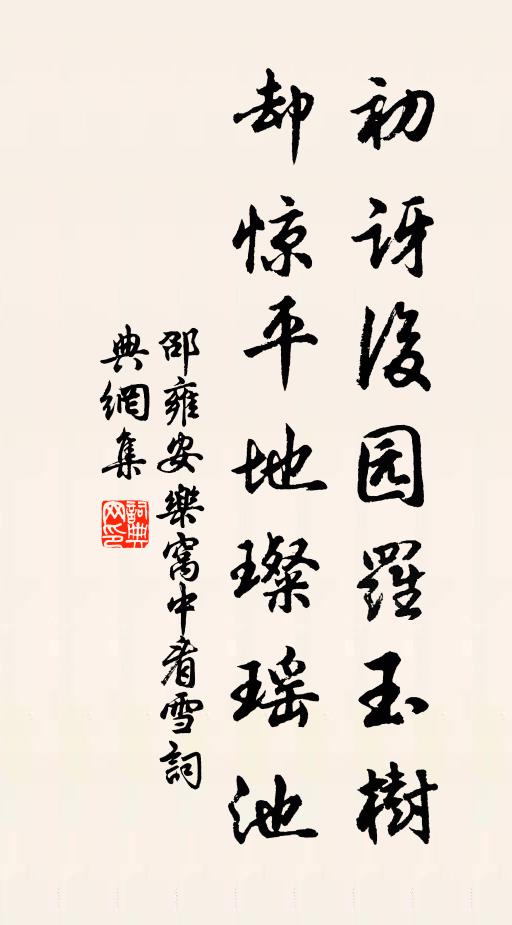 初讶後园羅玉樹
却惊平地璨瑶池
邵雍安樂窩中看雪詞
典網集
詞典网印